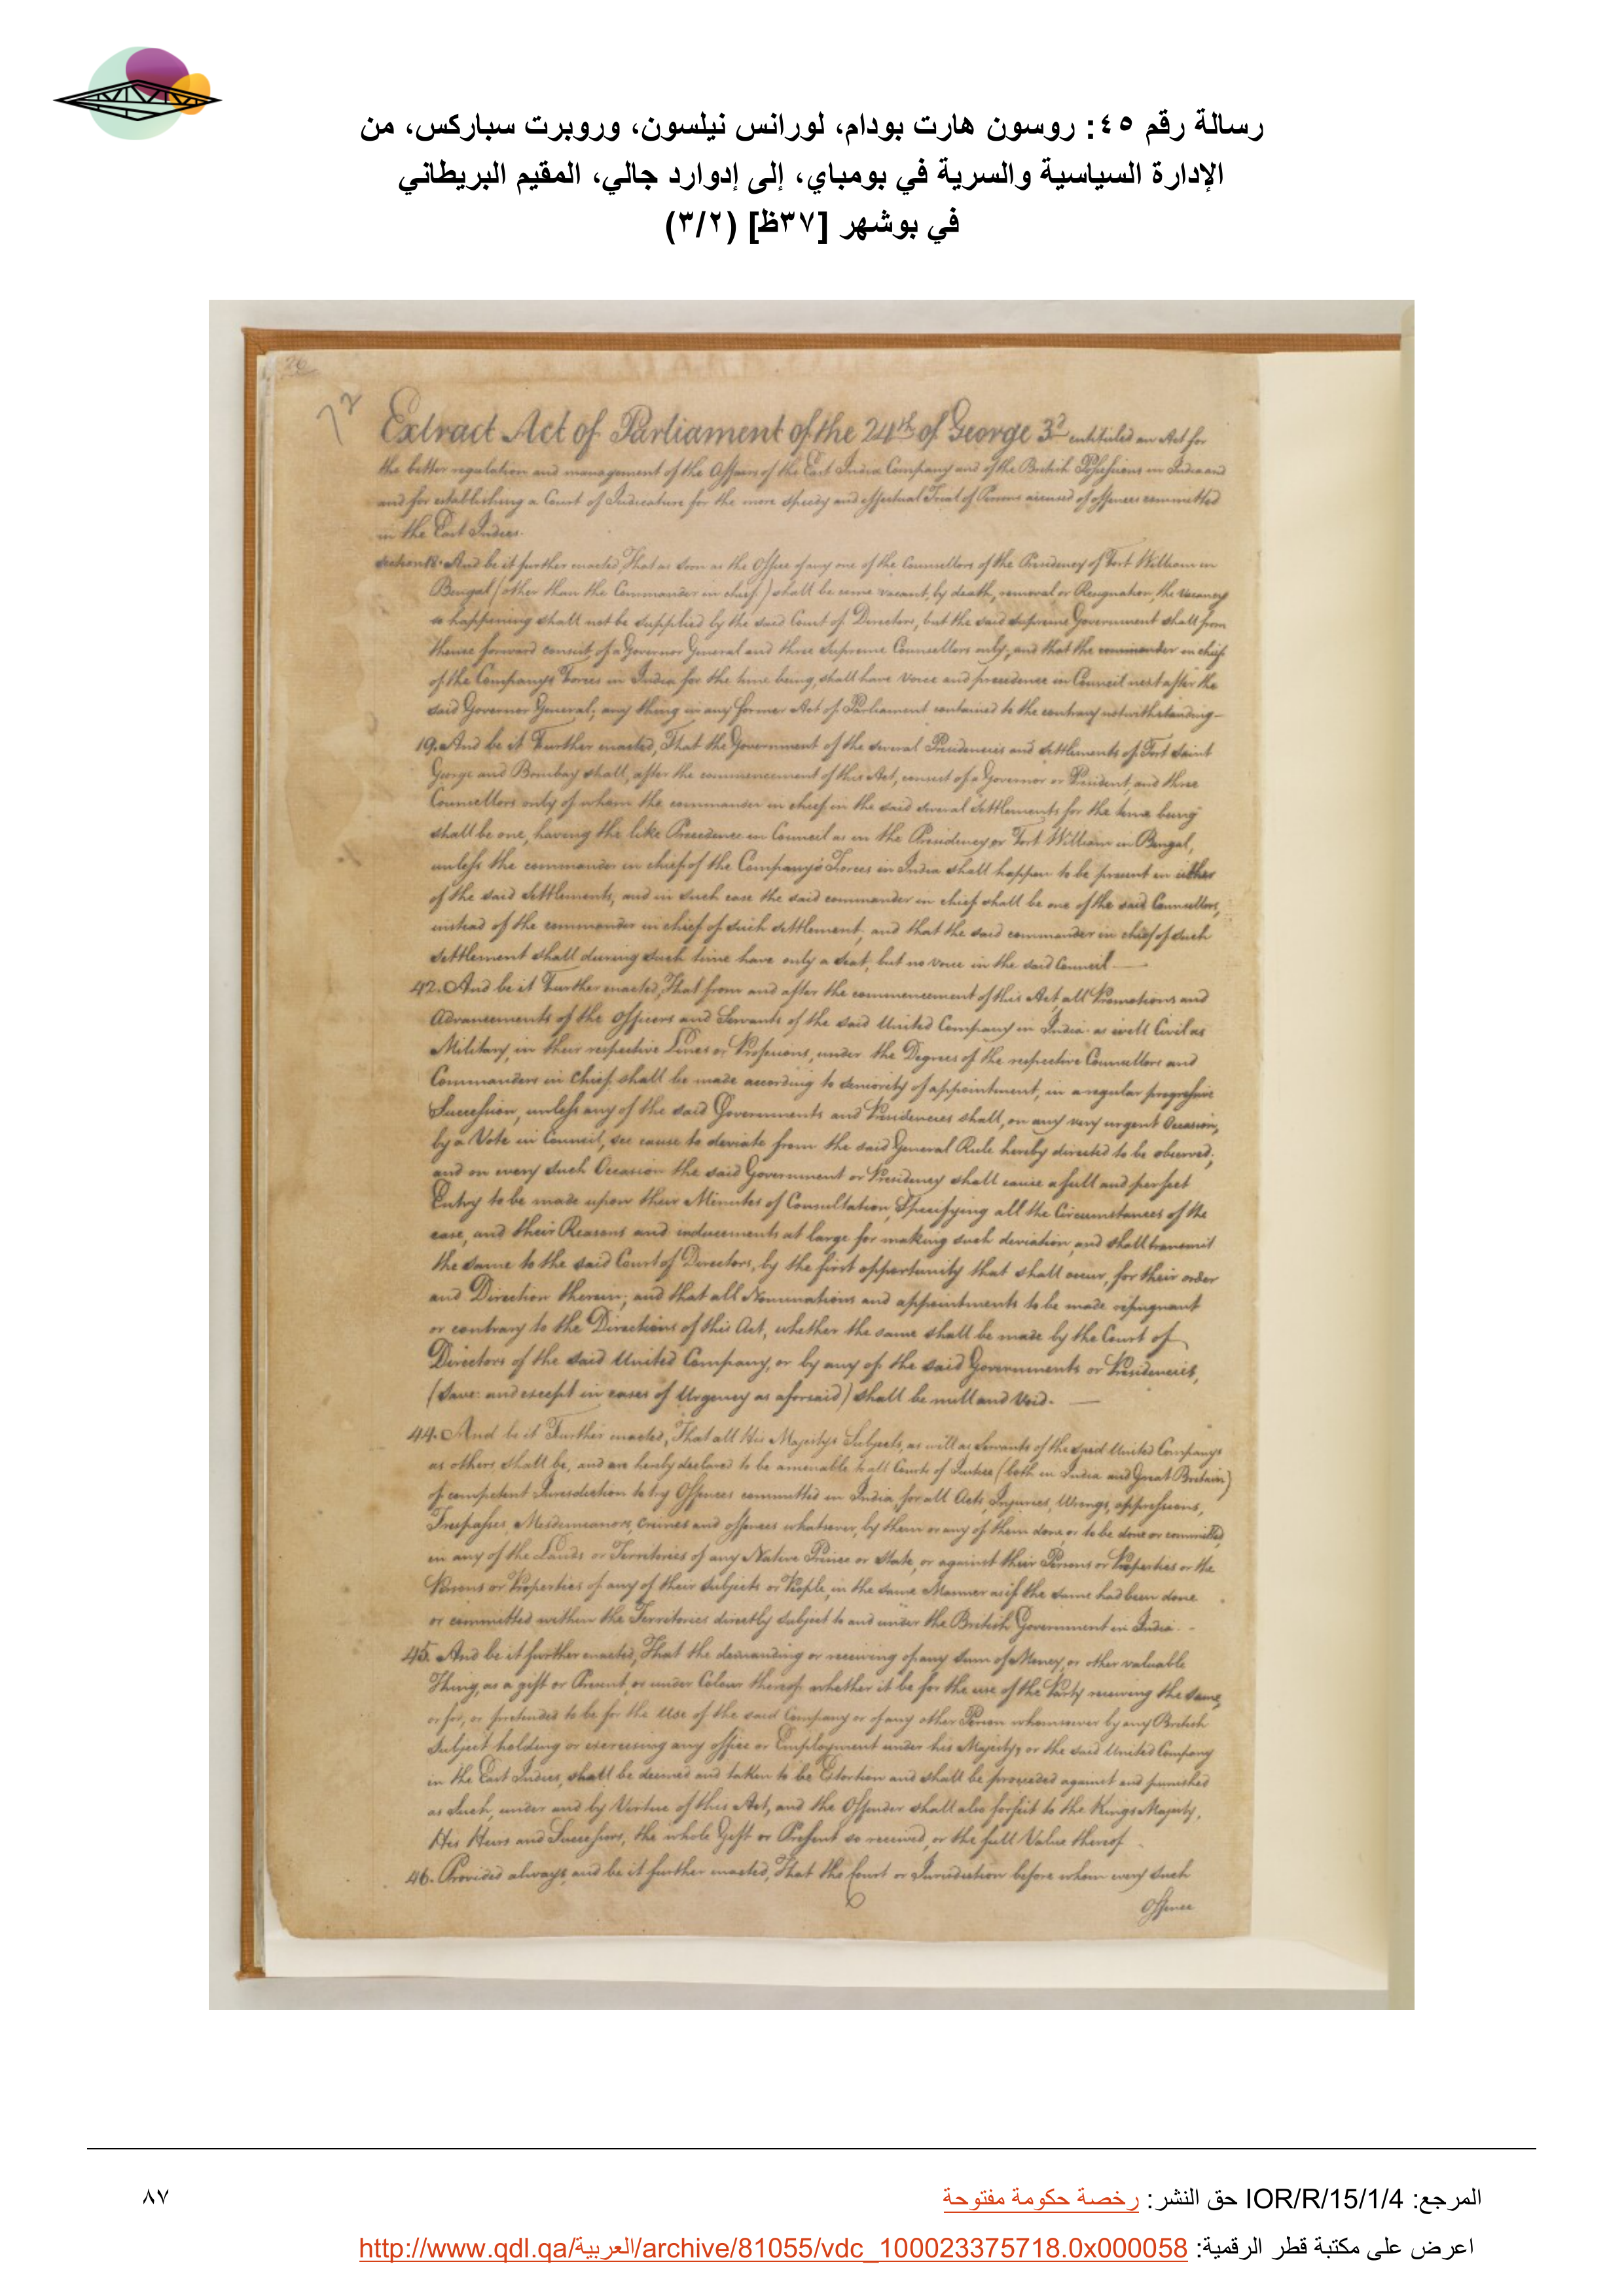 رسالة رقم ٤٥: روسون هارت بودام، لورانس نيلسون، وروبرت سباركس، من
الإدارة السياسية والسرية في بومباي، إلى إدوارد جالي، المقيم البريطاني
في بوشهر [٣٧ظ] (٣/٢)
26
72
Extract Act of Parliament of the 24th of George 3d entituled an Act for
the better regulation and management of the Affairs of the East India Company and of the British Possessions in India and
and for establishing a Court of Judicature for the more speedy and effectual Trial of Persons accused of offences committed
in the East Indies.
Section 18. And be it further enacted, That as soon as the Office of any one of the Councellors of the Presidency of Fort William in
Bengal (other than the Commander in chief) shall be come vacant, by death, removal or Resignation, the vacancy
so happening shall not be supplied by the said Court of Directors, but the said supreme Government shall from
thence forward consist of a Governor General and three Supreme Councellors only; and that the commander in chief
of the Companys Forces in India for the time being, shall have voice and precedence in Council next after the
said Governor General; any thing in any former Act of Parliament contained to the contrary notwithstanding—
19. And be it Further enacted, That the Government of the several Presidencies and Settlements of Fort Saint
George and Bombay shall, after the commencement of this Act, consist of a Governor or President, and three
Councellors only of whom the commander in chief in the said several Settlements for the time being
shall be one, having the like Precedence in Council as in the Presidency of Fort William in Bengal,
unless the commander in chief of the Company's Forces in India shall happen to be present in either
of the said Settlements, and in such case the said commander in chief shall be one of the said Councellors,
instead of the commander in chief of such settlement; and that the said commander in chief of such
settlement shall during such time have only a seat, but no voice in the said Council —
42. And be it Further enacted, That from and after the commencement of this Act, all Promotions and
Advancements of the Officers and Servants of the said United Company in India as well Civil as
Military, in their respective Lines or Professions, under the Degrees of the respective Councellors and
Commanders in Chief shall be made according to seniority of appointment, in a regular progressive
Succession, unless any of the said Governments and Presidencies shall, on any very urgent Occasion,
by a Vote in Council, see cause to deviate from the said General Rule hereby directed to be observed;
and on every such Occasion the said Government or Presidency shall cause a full and perfect
Entry to be made upon their Minutes of Consultation, Specifying all the Circumstances of the
case, and their Reasons and inducements at large for making such deviation, and shall transmit
the same to the said Court of Directors, by the first opportunity that shall occur, for their order
and Direction therein; and that all Nominations and appointments to be made repugnant
or contrary to the Directions of this Act, whether the same shall be made by the Court of
Directors of the said United Company, or by any of the said Governments or Presidencies,
(Save: and except in cases of Urgency as aforsaid) shall be null and Void. —
44. And be it Further enacted, That all His Majestys Subjects, as well as Servants of the said United Companys
as others, shall be, and are hereby declared to be amenable to all Courts of Justice (both in India and Great Britain)
of competent Jurisdiction to try Offences committed in India, for all Acts, Injuries, Wrongs, oppressions,
Trespasses, Misdemeanors, Crimes and offences whatsoever, by them or any of them done, or to be done or committed,
in any of the Lands or Territories of any Native Prince or State, or against their Persons or Properties or the
Persons or Properties of any of their Subjects or People, in the same Manner as if the same had been done
or committed within the Territories directly subject to and under the British Government in India. -
45. And be it further enacted, That the demanding or receiving of any Sum of Money, or other valuable
Thing, as a gift or Present, or under Colour thereof whether it be for the use of the Party receiving the same,
or for, or pretended to be for the Use of the said Company or of any other Person whomsoever by any British
Subject holding or exercising any office or Employment under his Majesty, or the said United Company
in the East Indies, shall be deemed and taken to be Extortion and shall be proceeded against and punished
as Such, under and by Virtue of this Act, and the Offender shall also forfeit to the Kings Majesty,
His Heirs and Successors, the whole Gift or Present so received, or the full Value thereof -
46. Provided always, and be it further enacted, That the Court or Jurisdiction before whom every such
Offence
المرجع: IOR/R/15/1/4 حق النشر: رخصة حكومة مفتوحة
٨٧
اعرض على مكتبة قطر الرقمية: http://www.qdl.qa/العربية/archive/81055/vdc_100023375718.0x000058